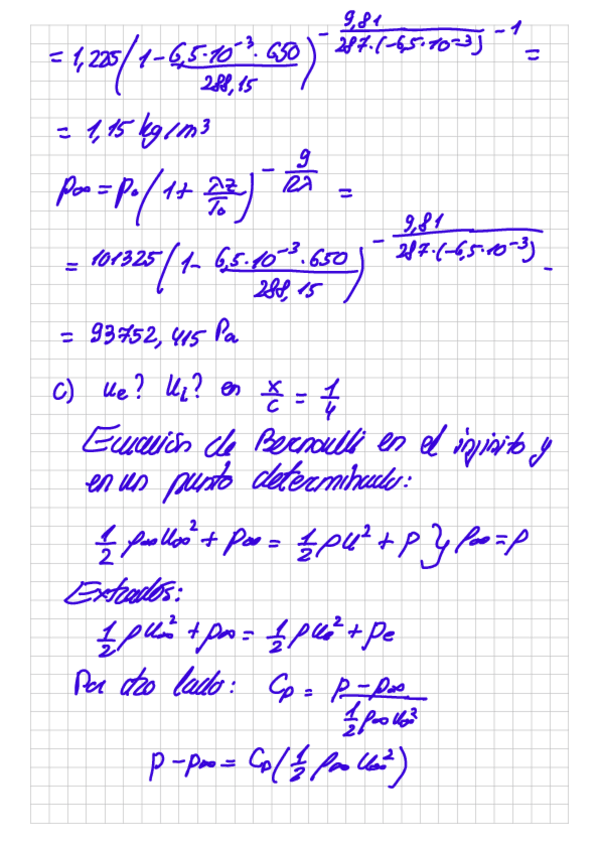 = 1,225 (1 - 6,5·10⁻³·650 / 288,15)^(- 9,81 / 287·(-6,5·10⁻³) - 1) =
= 1,15 kg/m³
p∞ = p₀ (1 + λz / T₀)^(- g / Rλ) =
= 101325 (1 - 6,5·10⁻³·650 / 288,15)^(- 9,81 / 287·(-6,5·10⁻³)) -
= 93752,415 Pa
c) ue? ui? en x/c = 1/4
Ecuación de Bernoulli en el infinito y
en un punto determinado:
1/2 ρ∞ u∞² + p∞ = 1/2 ρu² + p } ρ∞ = ρ
Extradós:
1/2 ρ u∞² + p∞ = 1/2 ρ ue² + pe
Por otro lado: Cp = p - p∞ / 1/2 ρ∞ u∞²
p - p∞ = Cp (1/2 ρ∞ u∞²)